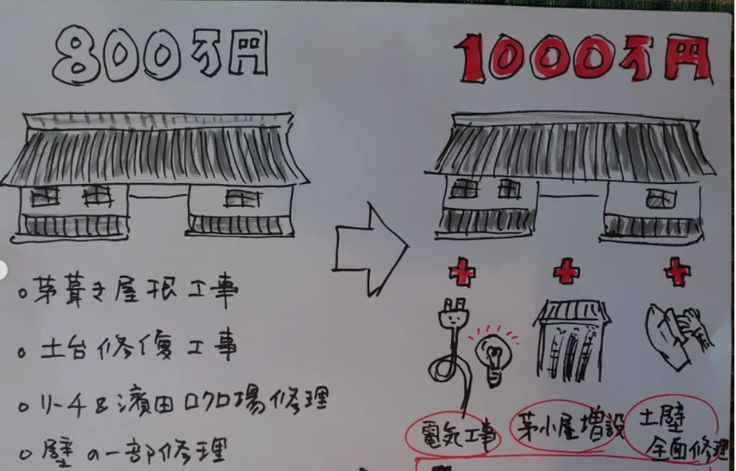 800万円
1000万円
○茅葺き屋根工事
○土台修復工事
○リーチ&濱田ロクロ場修理
○壁の一部修理
+ + +
電気工事
茅小屋増設
土壁
全面修理